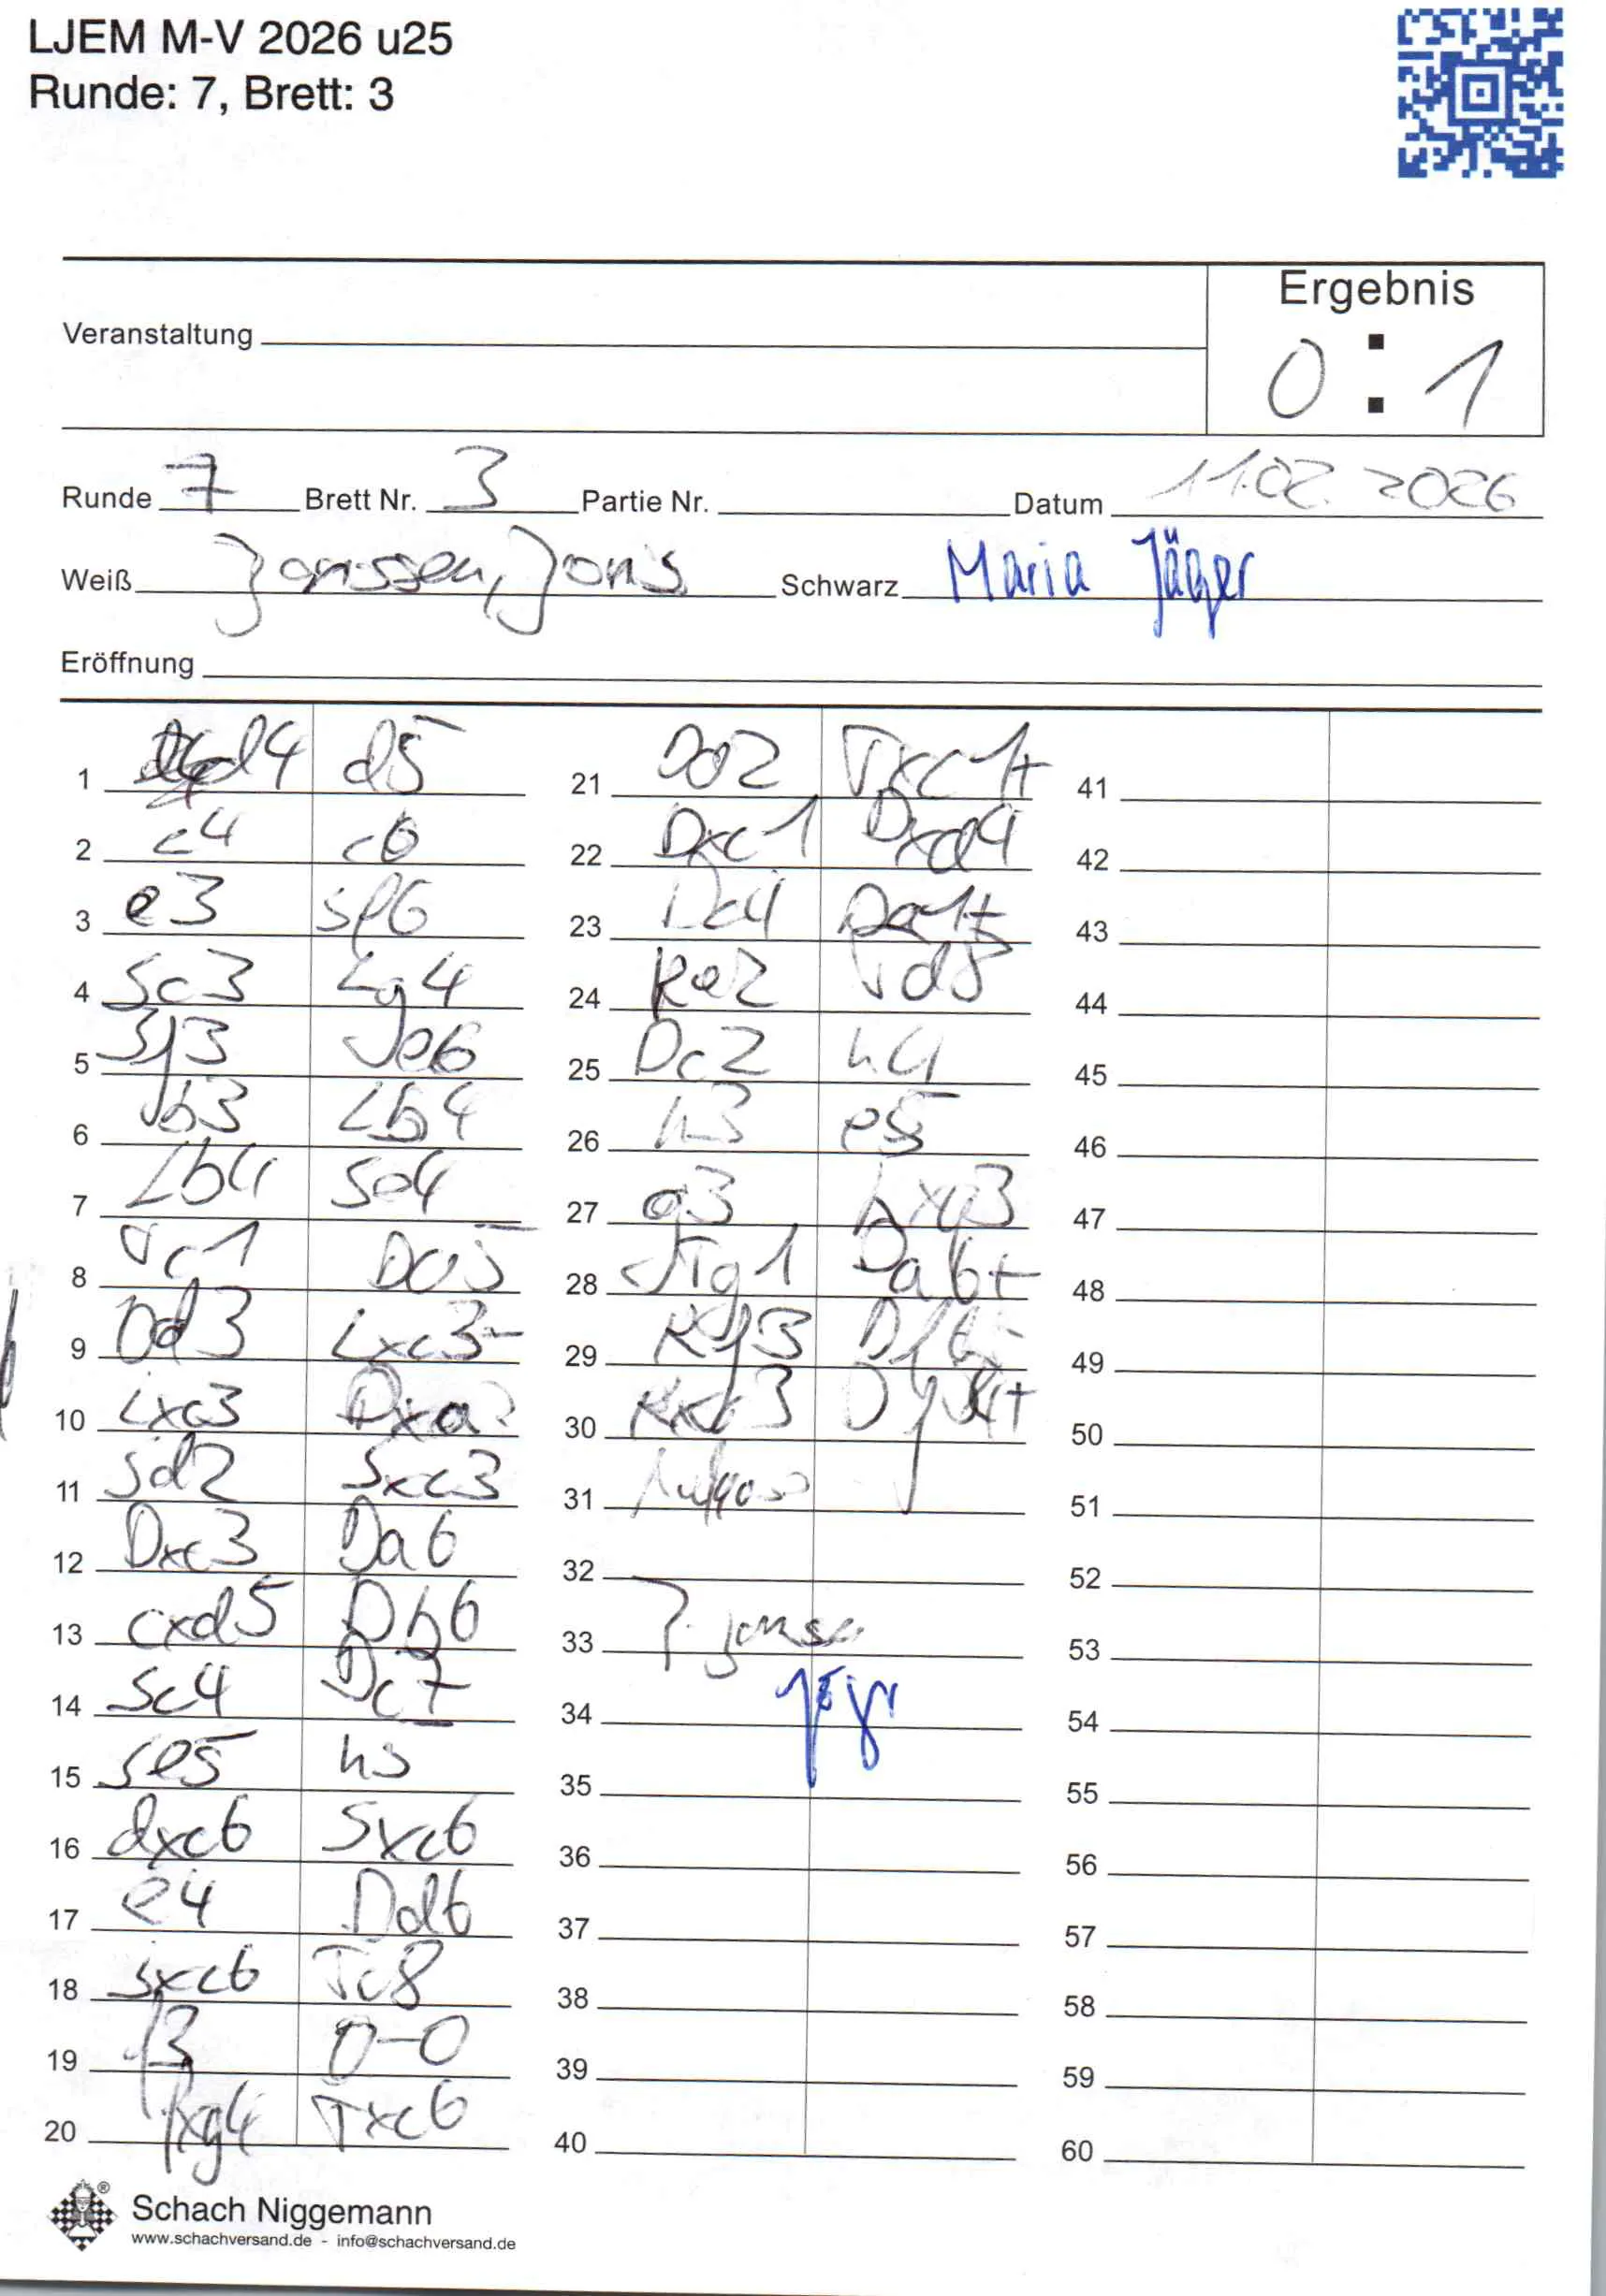 LJEM M-V 2026 u25
Runde: 7, Brett: 3
Ergebnis
0 : 1
Veranstaltung
Runde 7 Brett Nr. 3 Partie Nr. Datum 11.02.2026
Weiß Janssen, Jonis Schwarz Maria Jäger
Eröffnung
1 d4 d5
2 c4 c6
3 e3 Sf6
4 Sc3 Lg4
5 Sf3 Se6
6 b3 Lb4
7 Lb4 Se4
8 Tc1 Da5
9 Dd3 Lxc3
10 Lxc3 Dxa2
11 Sd2 Sxc3
12 Dxc3 Da6
13 cxd5 Db6
14 Sc4 Dc7
15 Se5 h5
16 dxc6 Sxc6
17 e4 Dd6
18 Sxc6 Tc8
19 f3 0-0
20 fxg4 Txc6
21 Dd2 Txc1+
22 Dxc1 Dxd4
23 Lc4 Da1+
24 Ke2 Td8
25 Dc2 h4
26 h3 e5
27 g3 hxg3
28 Tg1 Da6+
29 Kf3 Df6
30 Kxg3 Df4+
31
32
33
34
35
36
37
38
39
40
41
42
43
44
45
46
47
48
49
50
51
52
53
54
55
56
57
58
59
60
Schach Niggemann
www.schachversand.de - info@schachversand.de